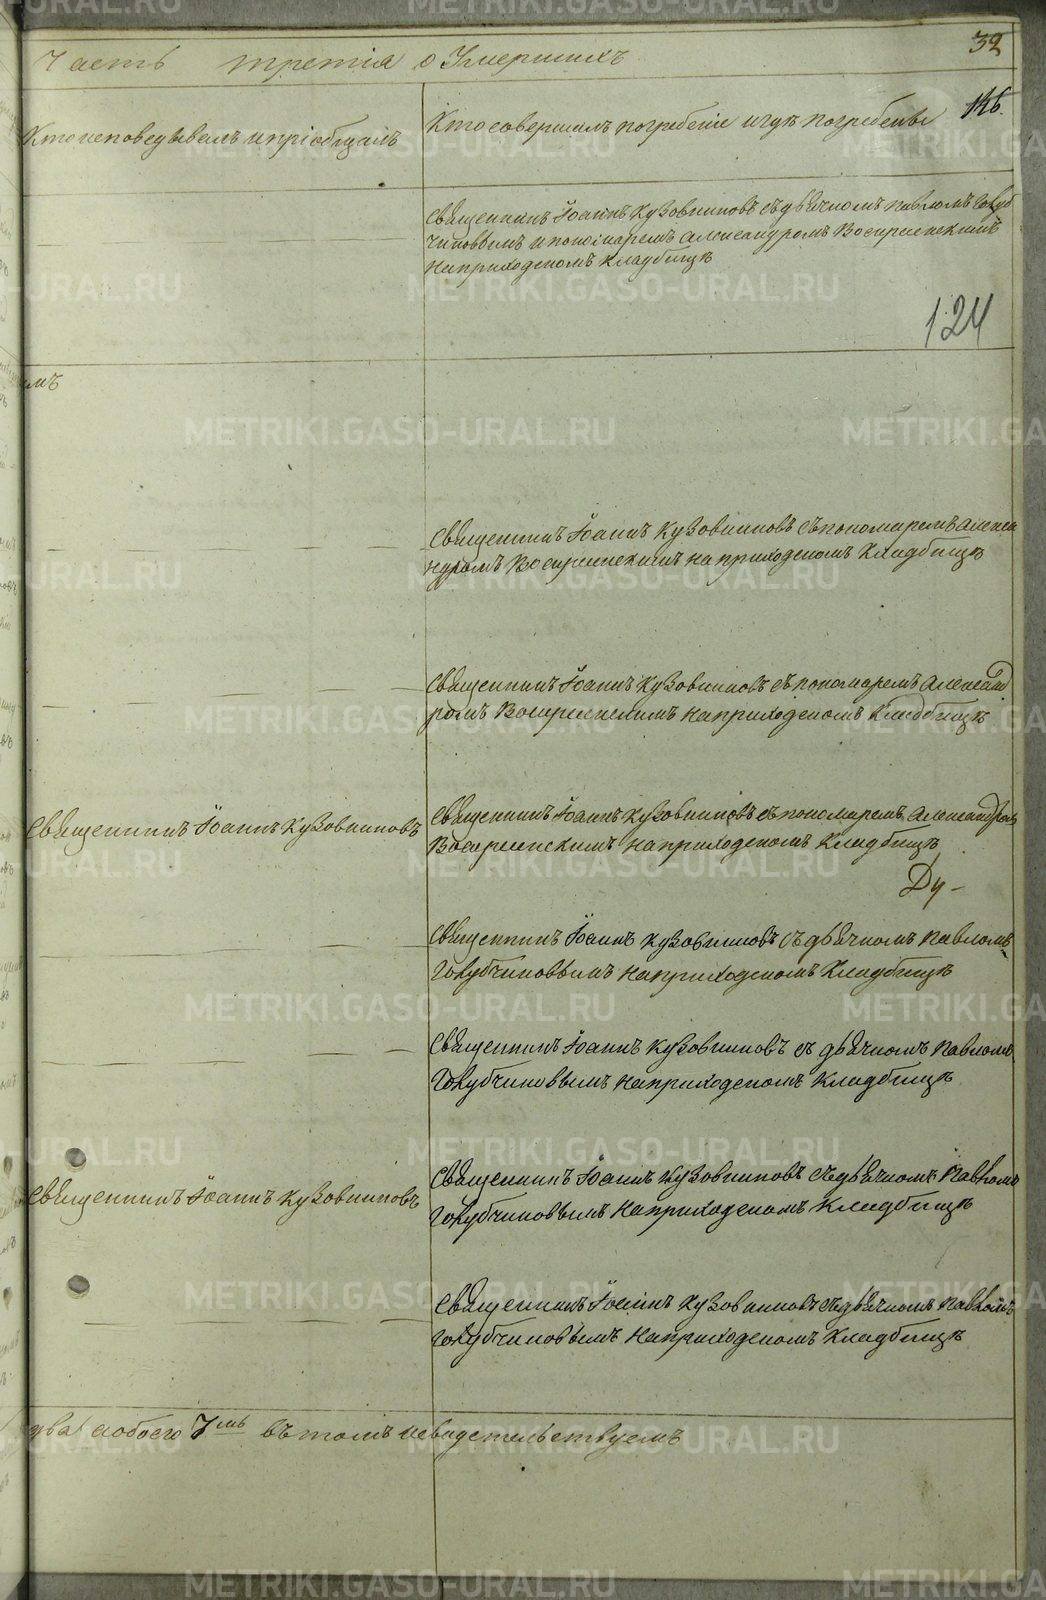 32
Часть третія о Умершихъ
126.
Кто исповедывалъ и пріобщалъ
Кто совершалъ погребеніе и гдѣ погребены
Священникъ Іоаннъ Кузовниковъ съ дьячкомъ Павломъ Голуб
чиковымъ и пономаремъ Александромъ Воскресенскимъ
на приходскомъ кладбищѣ
124
мъ
Священникъ Іоаннъ Кузовниковъ съ пономаремъ Алекса
ндромъ Воскресенскимъ на приходскомъ кладбищѣ
Священникъ Іоаннъ Кузовниковъ съ пономаремъ Александ
ромъ Воскресенскимъ на приходскомъ кладбищѣ
Священникъ Іоаннъ Кузовниковъ
Священникъ Іоаннъ Кузовниковъ съ пономаремъ Александромъ
Воскресенскимъ на приходскомъ кладбищѣ
Ду-
Священникъ Іоаннъ Кузовниковъ съ дьячкомъ Павломъ
Голубчиковымъ на приходскомъ кладбищѣ
Священникъ Іоаннъ Кузовниковъ съ дьячкомъ Павломъ
Голубчиковымъ на приходскомъ кладбищѣ
Священникъ Іоаннъ Кузовниковъ
Священникъ Іоаннъ Кузовниковъ съ дьячкомъ Павломъ
Голубчиковымъ на приходскомъ кладбищѣ
Священникъ Іоаннъ Кузовниковъ съ дьячкомъ Павломъ
Голубчиковымъ на приходскомъ кладбищѣ
два а обоего 7мь въ томъ и свидетельствуемъ
METRIKI.GASO-URAL.RU